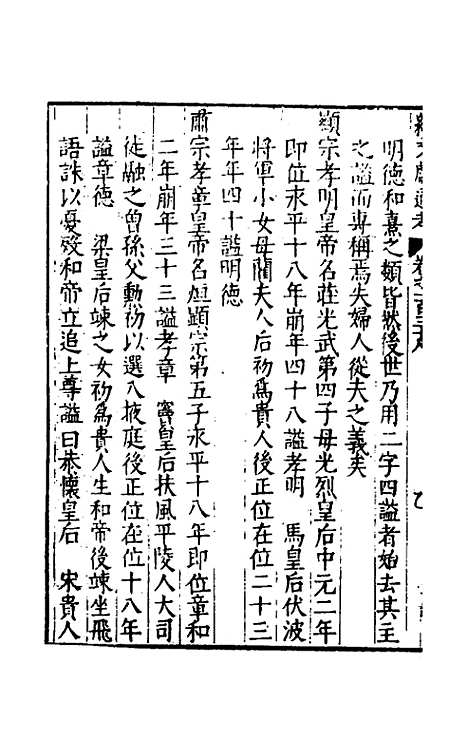 明德和熹之類皆然後世乃用二字四謚者始去其主
之謚而專稱焉失婦人從夫之義矣
顯宗孝明皇帝名莊光武第四子母光烈皇后中元二年
即位永平十八年崩年四十八謚孝明 馬皇后伏波
將軍小女母藺夫人后初為貴人後正位在位二十三
年年四十謚明德
肅宗孝章皇帝名炟顯宗第五子永平十八年即位章和
二年崩年三十三謚孝章 竇皇后扶風平陵人大司
徒融之曾孫父勳初以選入掖庭後正位在位十八年
謚章德 梁皇后竦之女初為貴人生和帝後竦坐飛
語誅以憂殁和帝立追上尊謚曰恭懷皇后 宋貴人